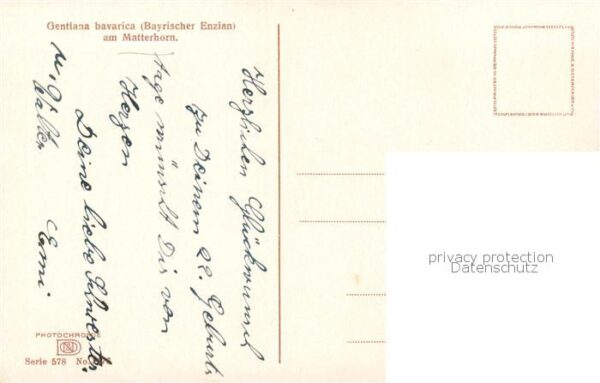 Gentiana bavarica (Bayrischer Enzian)
am Matterhorn.
Herzlichen Glückwunsch
zu Deinem 22. Geburts
tage wünscht Dir von
Herzen
Deine liebe Schwester.
Walter
Emi.
PHOTOCHROMIE
Serie 578 No.
privacy protection
Datenschutz